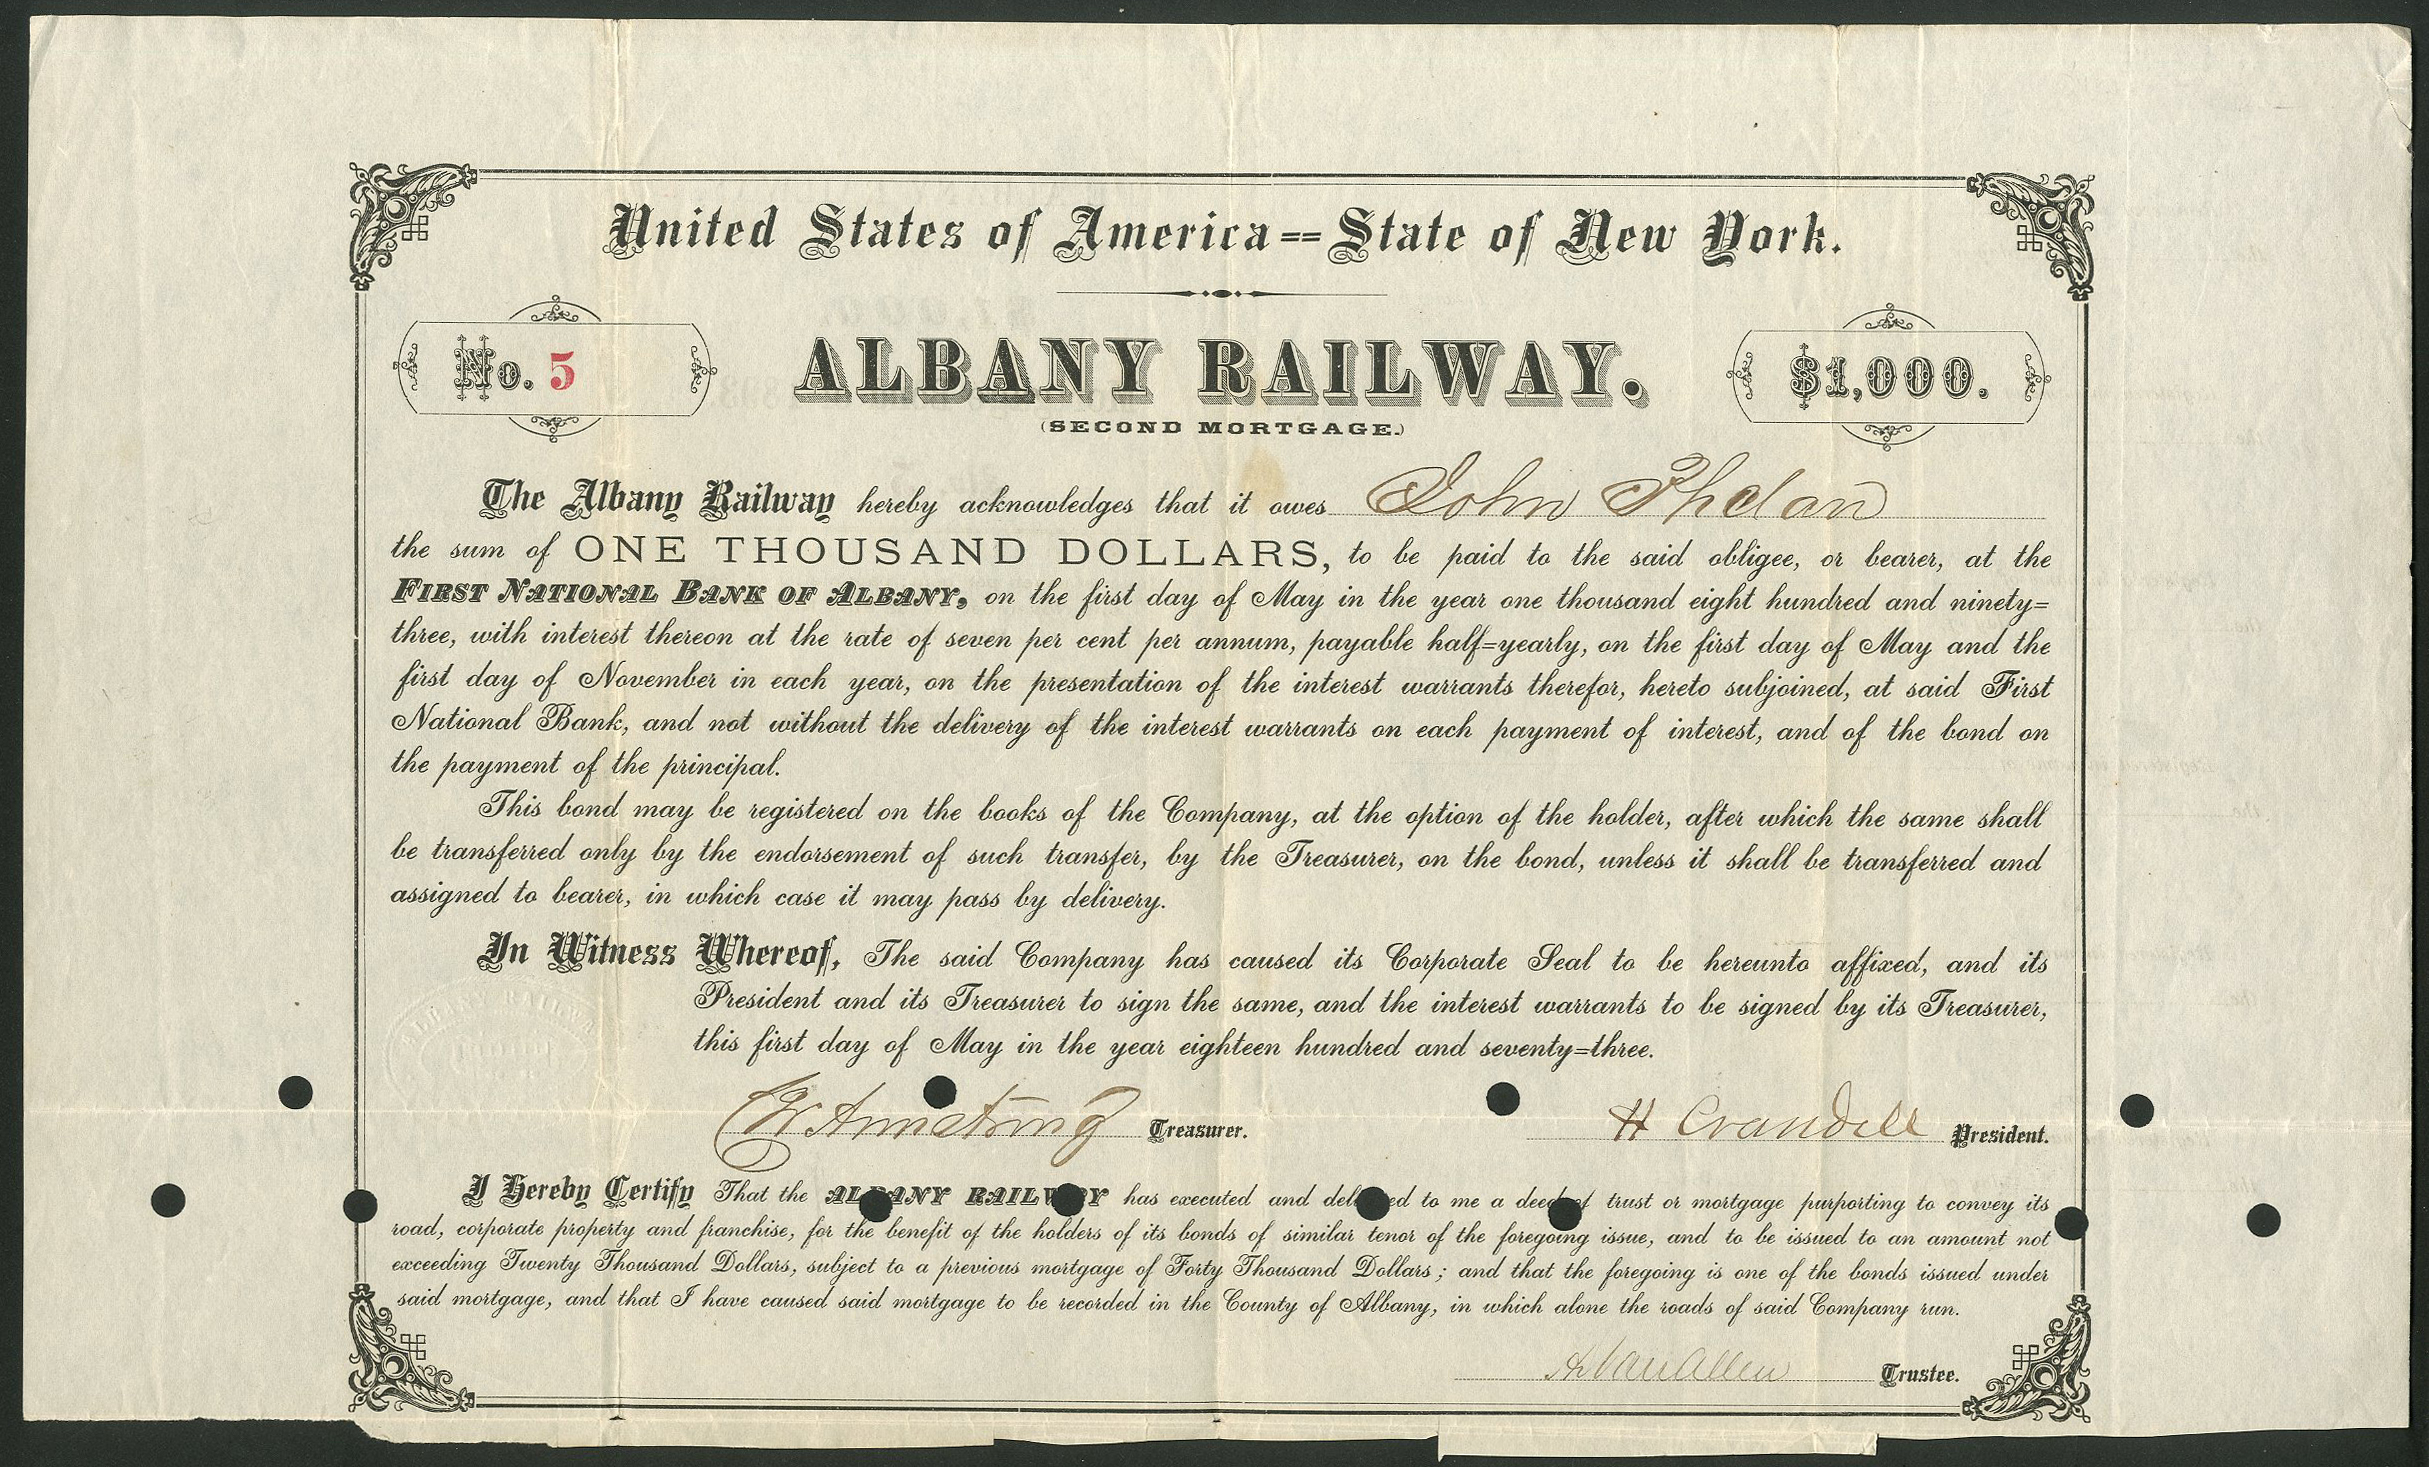 United States of America--State of New York.
No. 5
ALBANY RAILWAY.
$1,000.
(SECOND MORTGAGE.)
The Albany Railway hereby acknowledges that it owes John Phelan
the sum of ONE THOUSAND DOLLARS, to be paid to the said obligee, or bearer, at the
FIRST NATIONAL BANK OF ALBANY, on the first day of May in the year one thousand eight hundred and ninety=
three, with interest thereon at the rate of seven per cent per annum, payable half=yearly, on the first day of May and the
first day of November in each year, on the presentation of the interest warrants therefor, hereto subjoined, at said First
National Bank, and not without the delivery of the interest warrants on each payment of interest, and of the bond on
the payment of the principal.
This bond may be registered on the books of the Company, at the option of the holder, after which the same shall
be transferred only by the endorsement of such transfer, by the Treasurer, on the bond, unless it shall be transferred and
assigned to bearer, in which case it may pass by delivery.
In Witness Whereof, The said Company has caused its Corporate Seal to be hereunto affixed, and its
President and its Treasurer to sign the same, and the interest warrants to be signed by its Treasurer,
this first day of May in the year eighteen hundred and seventy=three.
Armstrong Treasurer.
H Crandell President.
I Hereby Certify That the ALBANY RAILWAY has executed and delivered to me a deed of trust or mortgage purporting to convey its
road, corporate property and franchise, for the benefit of the holders of its bonds of similar tenor of the foregoing issue, and to be issued to an amount not
exceeding Twenty Thousand Dollars, subject to a previous mortgage of Forty Thousand Dollars; and that the foregoing is one of the bonds issued under
said mortgage, and that I have caused said mortgage to be recorded in the County of Albany, in which alone the roads of said Company run.
VanAllen Trustee.